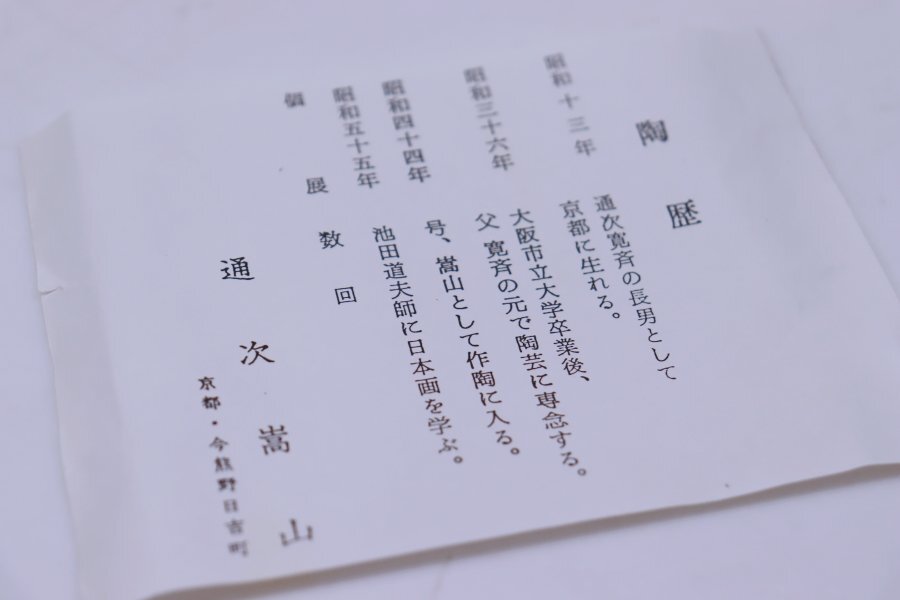 陶歴
昭和十三年 通次寛斉の長男として
京都に生れる。
昭和三十六年 大阪市立大学卒業後、
父 寛斉の元で陶芸に専念する。
昭和四十四年 号、嵩山として作陶に入る。
昭和五十五年 池田道夫師に日本画を学ぶ。
個展数回
通次嵩山
京都・今熊野日吉町